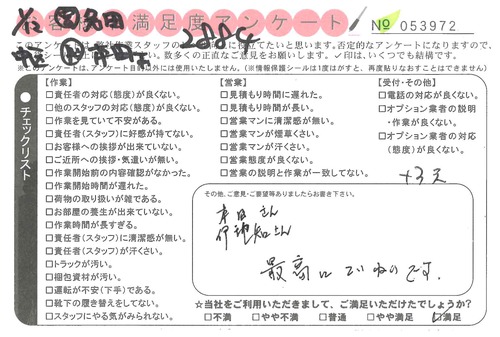 お客様満足度アンケート
№ 053972
1/12
2884
このアンケートは、弊社作業スタッフの
に役立てたいと思います。否定的なアンケートになりますので、
数多くの正直なご意見をお願いします。✓印は、いくつでも結構です。
※このアンケートは、アンケート目的以外には使用いたしません。(※情報保護シールは1度はがすと、再度貼りなおすことはできません)
チェックリスト
【作業】
□責任者の対応(態度)が良くない。
□他のスタッフの対応(態度)が良くない。
□作業を見ていて不安がある。
□責任者(スタッフ)に好感が持てない。
□お客様への挨拶が出来ていない。
□ご近所への挨拶・気遣いが無い。
□作業開始前の内容確認がなかった。
□作業開始時間が遅れた。
□荷物の取り扱いが雑である。
□お部屋の養生が出来ていない。
□作業時間が長すぎる。
□責任者(スタッフ)に清潔感が無い。
□責任者(スタッフ)が汗くさい。
□トラックが汚い。
□梱包資材が汚い。
□運転が不安(下手)である。
□靴下の履き替えをしてない。
□スタッフにやる気がみられない。
【営業】
□見積もり時間に遅れた。
□見積もり時間が長い。
□営業マンに清潔感が無い。
□営業マンが煙草くさい。
□営業マンが汗くさい。
□営業態度が良くない。
□営業の説明と作業が一致してない。
【受付・その他】
□電話の対応が良くない。
□オプション業者の説明
・作業が良くない。
□オプション業者の対応
(態度)が良くない。
その他、ご意見・ご要望等ありましたらお書き下さい。
さん
さん
最高にていねいです。
☆当社をご利用いただきまして、ご満足いただけたでしょうか?
□不満 □やや不満 □普通 □やや満足 ☑満足